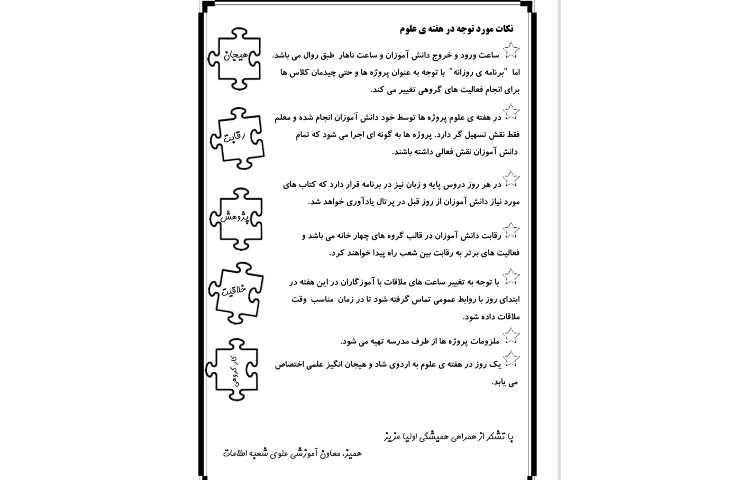 نکات مورد توجه در هفته ی علوم
ساعت ورود و خروج دانش آموزان و ساعت ناهار طبق روال می باشد.
اما "برنامه ی روزانه" با توجه به عنوان پروژه ها و حتی چیدمان کلاس ها
برای انجام فعالیت های گروهی تغییر می کند.
در هفته ی علوم پروژه ها توسط خود دانش آموزان انجام شده و معلم
فقط نقش تسهیل گر دارد. پروژه ها به گونه ای اجرا می شود که تمام
دانش آموزان نقش فعالی داشته باشند.
در هر روز دروس پایه و زبان نیز در برنامه قرار دارد که کتاب های
مورد نیاز دانش آموزان از روز قبل در پرتال یادآوری خواهد شد.
رقابت دانش آموزان در قالب گروه های چهار خانه می باشد و
فعالیت های برتر به رقابت بین شعب راه پیدا خواهند کرد.
با توجه به تغییر ساعت های ملاقات با آموزگاران در این هفته در
ابتدای روز با روابط عمومی تماس گرفته شود تا در زمان مناسب وقت
ملاقات داده شود.
ملزومات پروژه ها از طرف مدرسه تهیه می شود.
یک روز در هفته ی علوم به اردوی شاد و هیجان انگیز علمی اختصاص
می یابد.
هیجان
رقابت
پژوهش
خلاقیت
کار گروهی
با تشکر از همراهی همیشگی اولیا عزیز
معاون آموزشی علوی شعبه